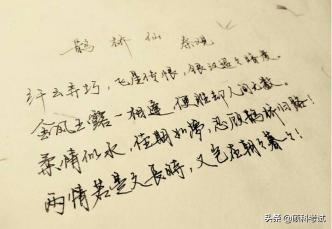 鹊桥仙 秦观
纤云弄巧，飞星传恨，银汉迢迢暗度。
金风玉露一相逢，便胜却人间无数。
柔情似水，佳期如梦，忍顾鹊桥归路！
两情若是久长时，又岂在朝朝暮暮！
头条 @顾科考试